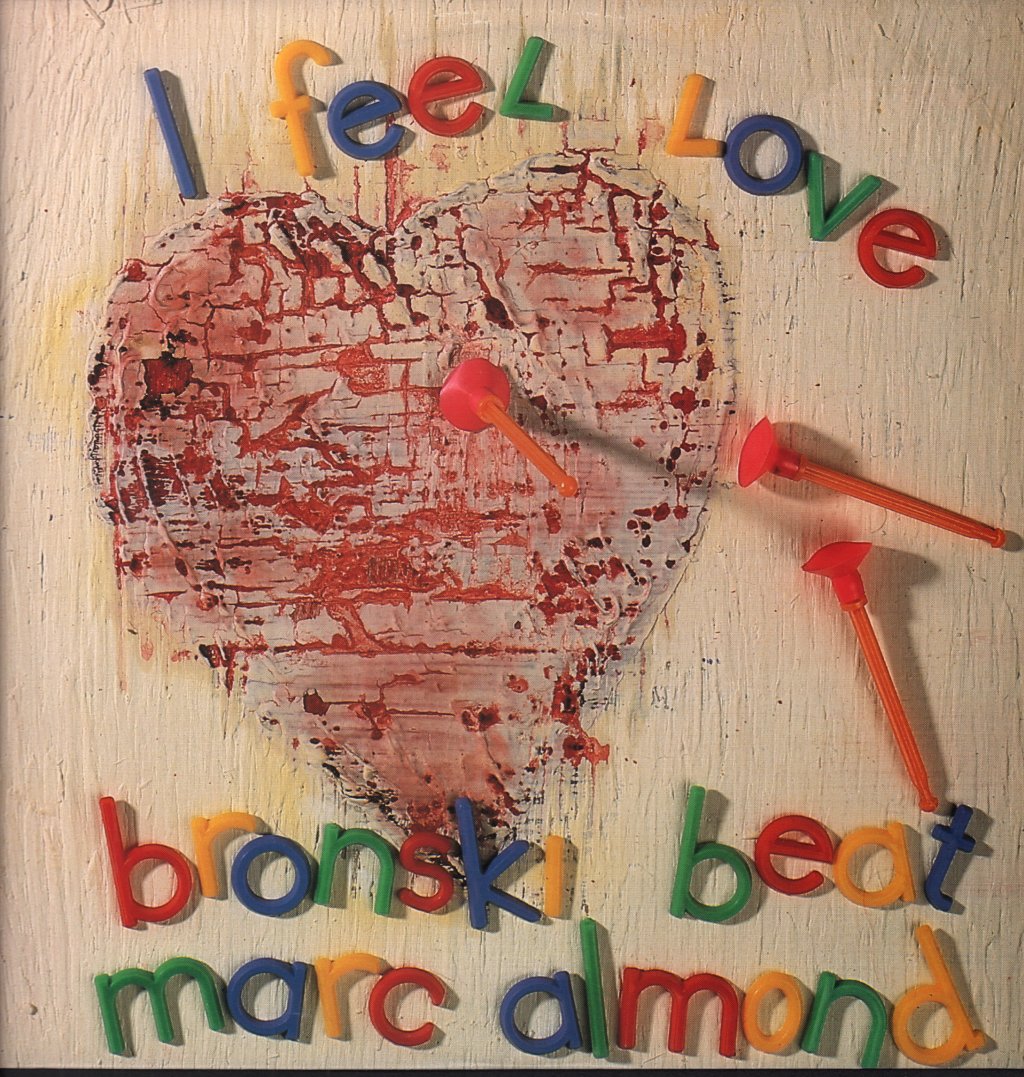 I feeL Love
bronski beat
marc almond